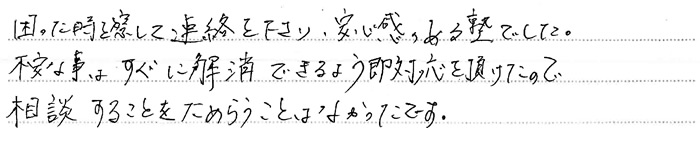 困った時を察して連絡を下さり、安心感のある塾でした。
不安な事はすぐに解消できるよう即対応を頂けたので
相談することをためらうことはなかったです。